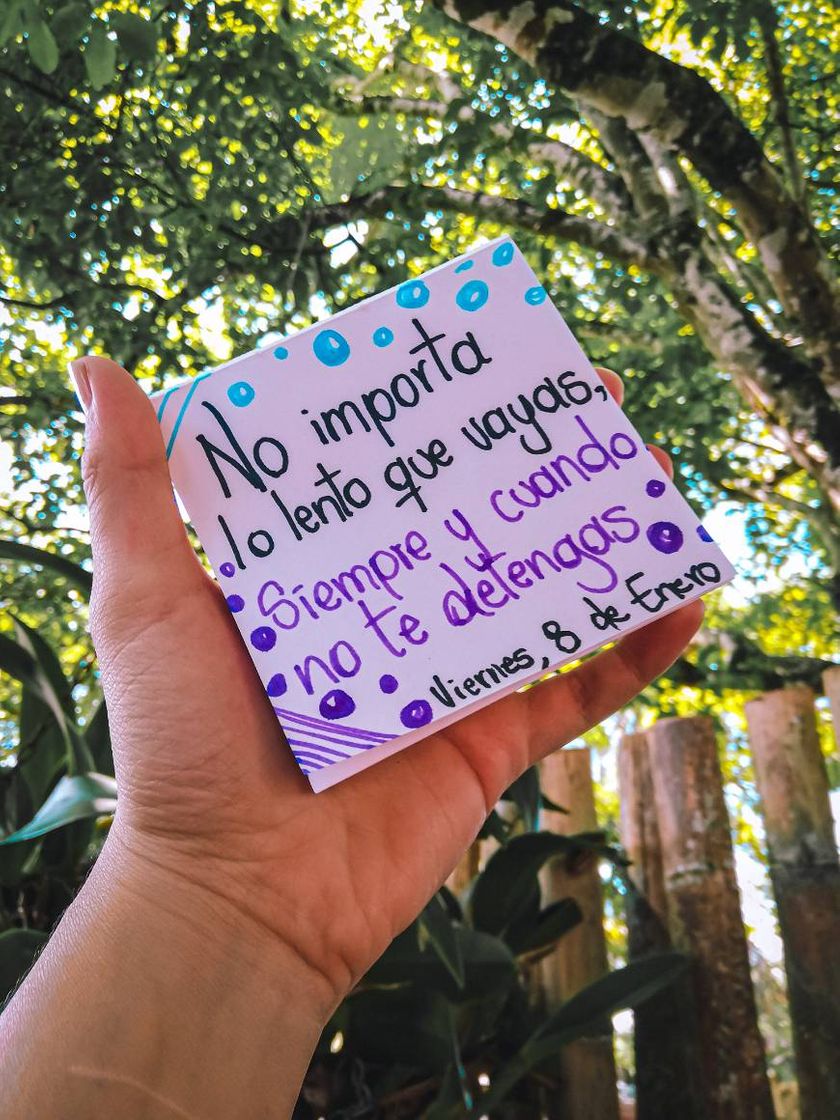 No importa
lo lento que vayas,
Siempre y cuando
no te detengas
Viernes, 8 de Enero